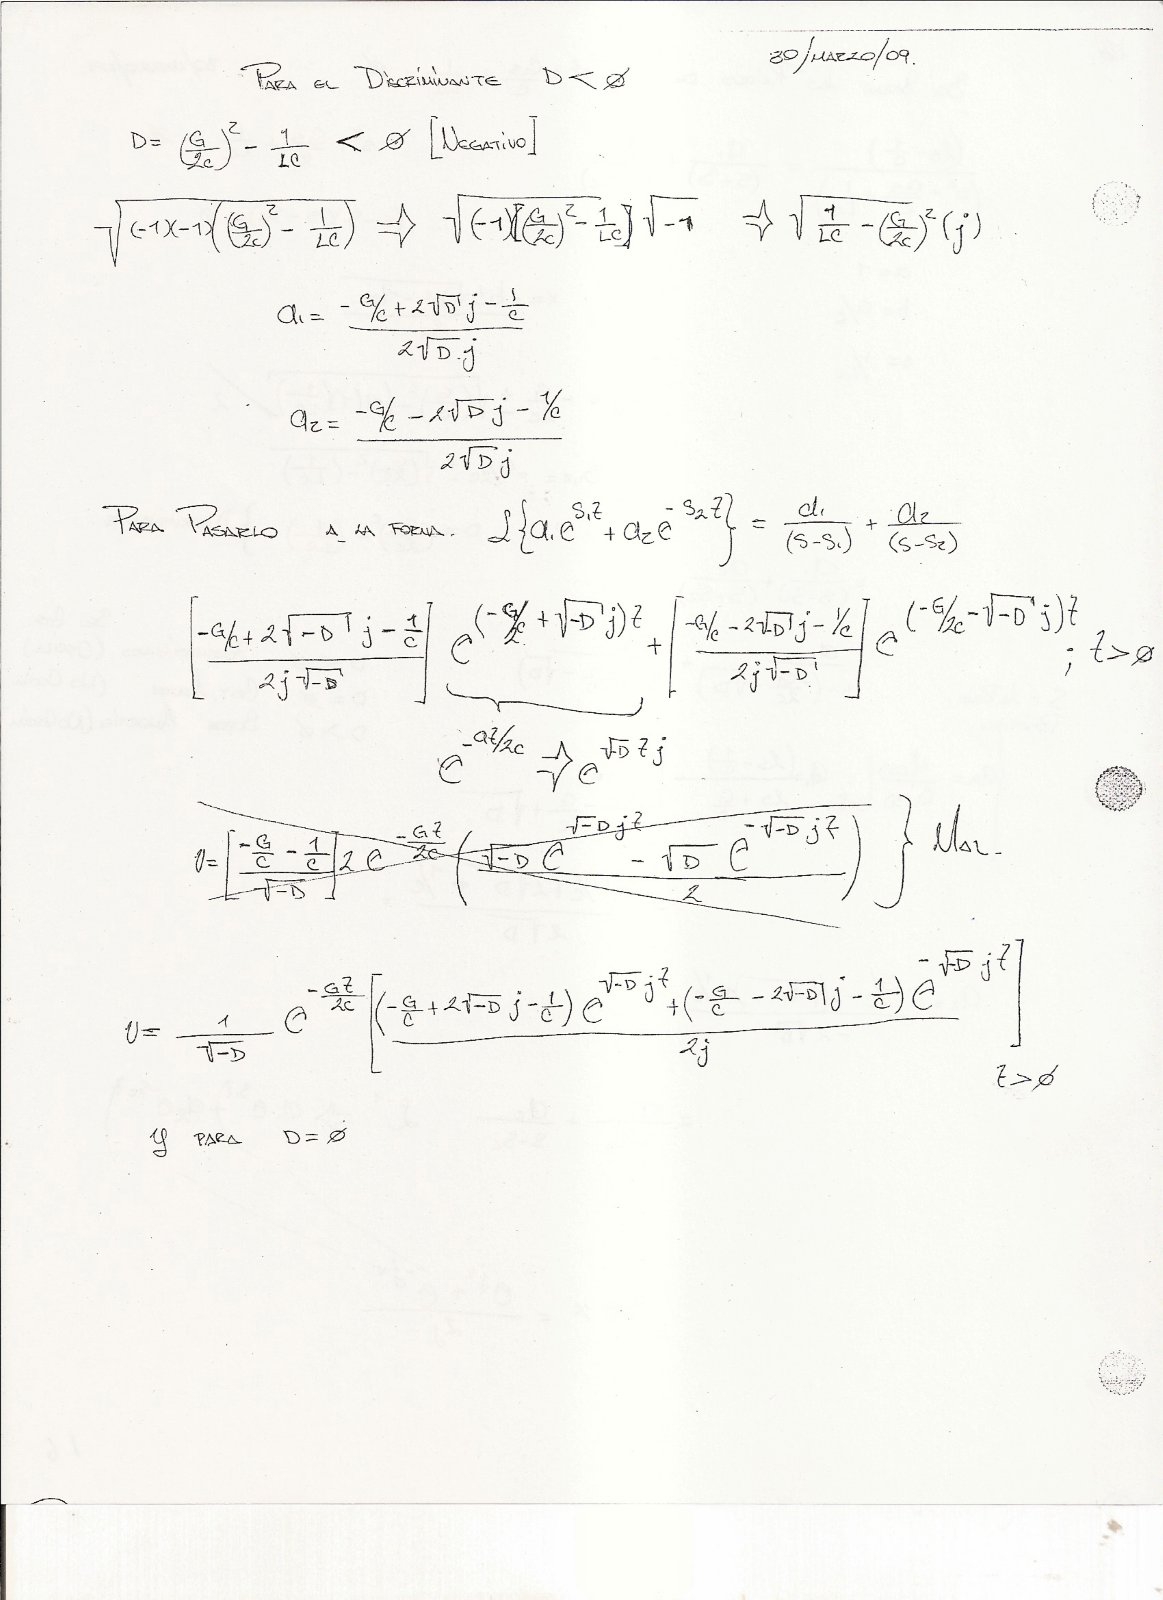 30/MARZO/09.
PARA EL DISCRIMINANTE D < ∅
D = (G/2C)² - 1/LC < ∅ [NEGATIVO]
√((-1)(-1)((G/2C)² - 1/LC)) ⇒ √((-1)[(G/2C)² - 1/LC]) √-1 ⇒ √(1/LC - (G/2C)²) (j)
a₁ = (-G/C + 2√D j - 1/C) / (2√D j)
a₂ = (-G/C - 2√D j - 1/C) / (2√D j)
PARA PASARLO A LA FORMA. ℒ{a₁e^(S₁t) + a₂e^(-S₂t)} = a₁/(S-S₁) + a₂/(S-S₂)
[(-G/C + 2√-D j - 1/C) / (2j√-D)] e^((-G/2C + √-D j)t) + [(-G/C - 2√-D j - 1/C) / (2j√-D)] e^((-G/2C - √-D j)t) ; t > ∅
e^(-Gt/2C) ⇒ e^(√-D t j)
v = [(-G/C - 1/C) / √-D] 2 e^(-Gt/2C) ((√-D e^(√-D jt) - √-D e^(-√-D jt)) / 2) } MAL.
v = 1/√-D e^(-Gt/2C) [((-G/C + 2√-D j - 1/C) e^(√-D jt) + (-G/C - 2√-D j - 1/C) e^(-√-D jt)) / 2j]
t > ∅
Y PARA D = ∅